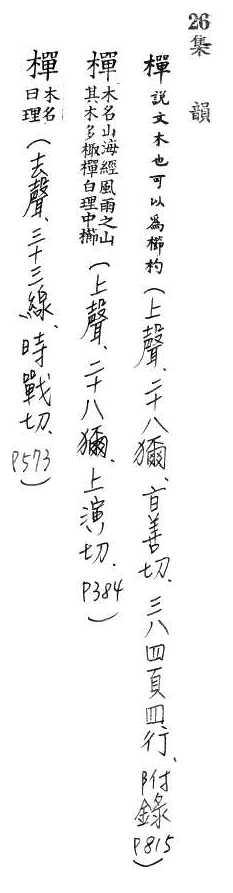 26集韻
樿說文木也可以為櫛杓(上聲、二十八獮、旨善切、三八四頁四行、附錄P815)
樿木名山海經風雨之山其木多棷樿白理中櫛(上聲、二十八獮、上演切、P384)
樿木名白理(去聲、三十三線、時戰切、P573)